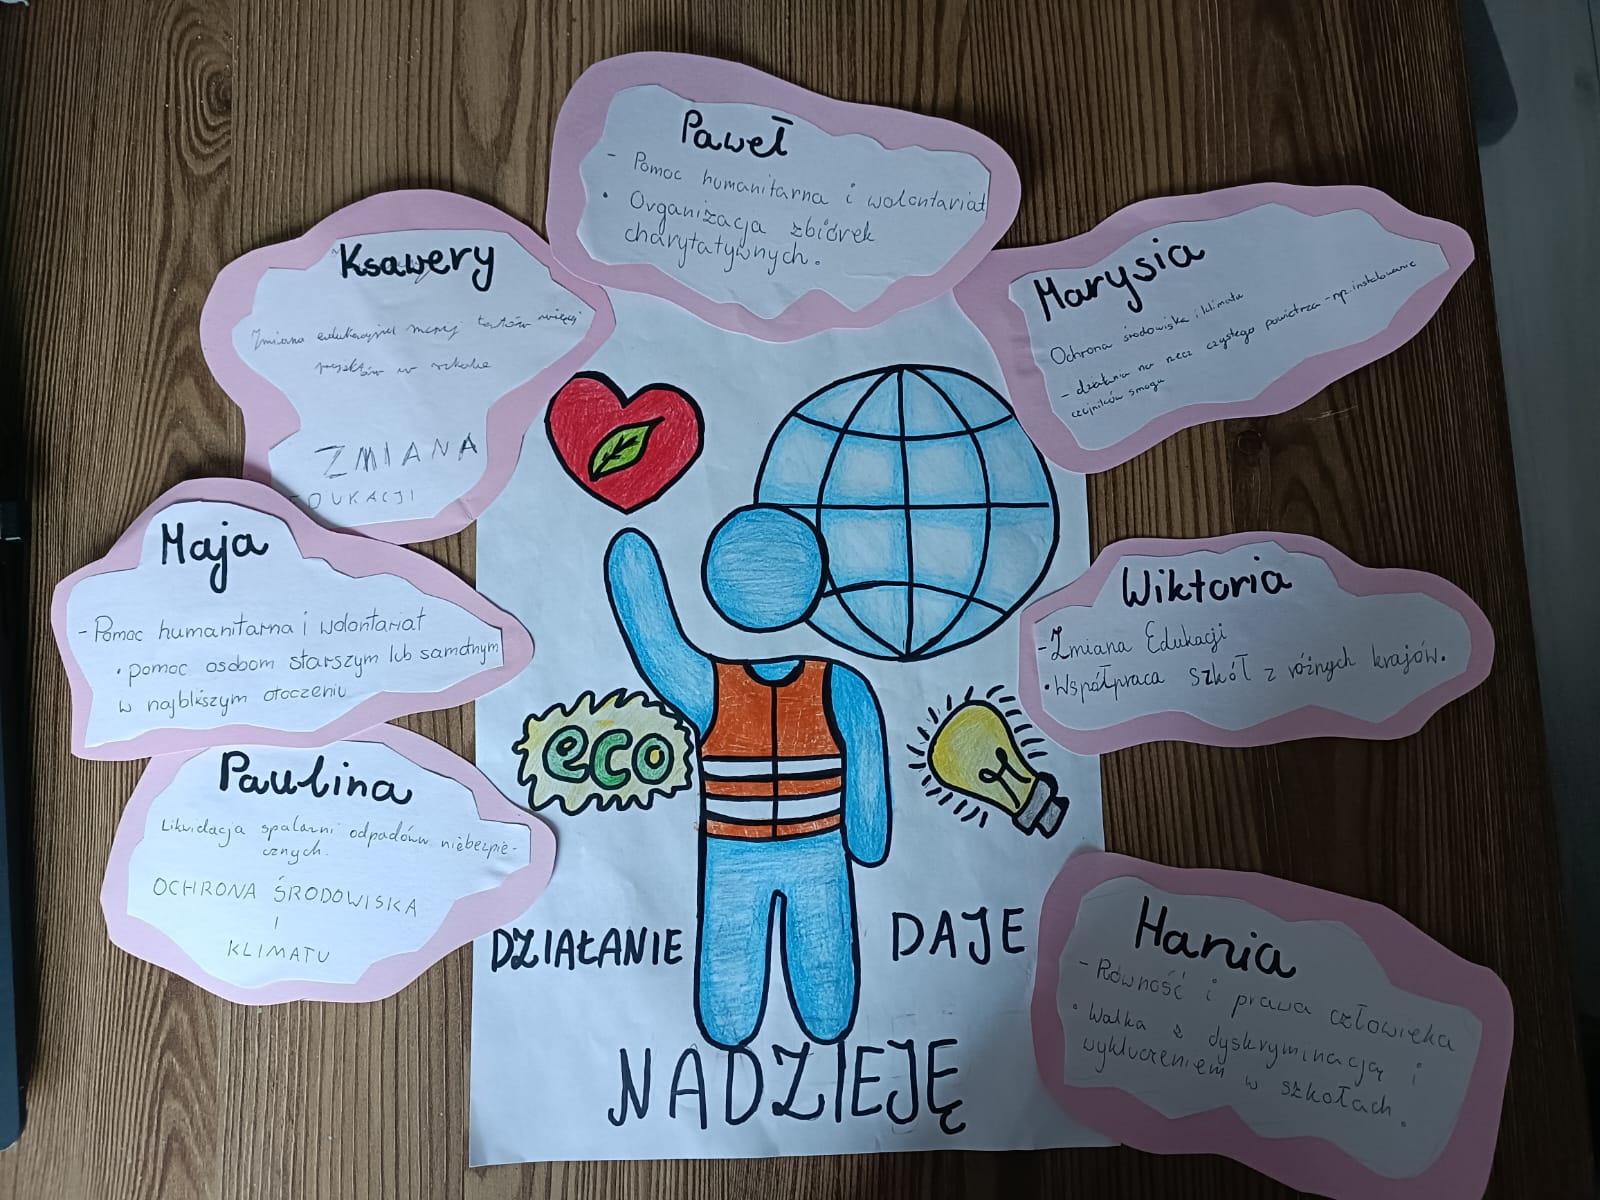 Paweł
- Pomoc humanitarna i wolontariat
• Organizacja zbiórek
charytatywnych.
Ksawery
Zmiana edukacyjna mniej testów więcej
projektów w szkole
ZMIANA
EDUKACJI
Marysia
Ochrona środowiska i klimatu
- działania na rzecz czystego powietrza - np. instalowanie
czujników smogu
Maja
- Pomoc humanitarna i wolontariat
• pomoc osobom starszym lub samotnym
w najbliższym otoczeniu
Wiktoria
- Zmiana Edukacji
• Współpraca szkół z różnych krajów.
Paulina
Likwidacja spalarni odpadów niebezpie-
cznych.
OCHRONA ŚRODOWISKA
I
KLIMATU
eco
Hania
- Równość i prawa człowieka
• Walka z dyskryminacją i
wykluczeniem w szkołach.
DZIAŁANIE DAJE
NADZIEJĘ